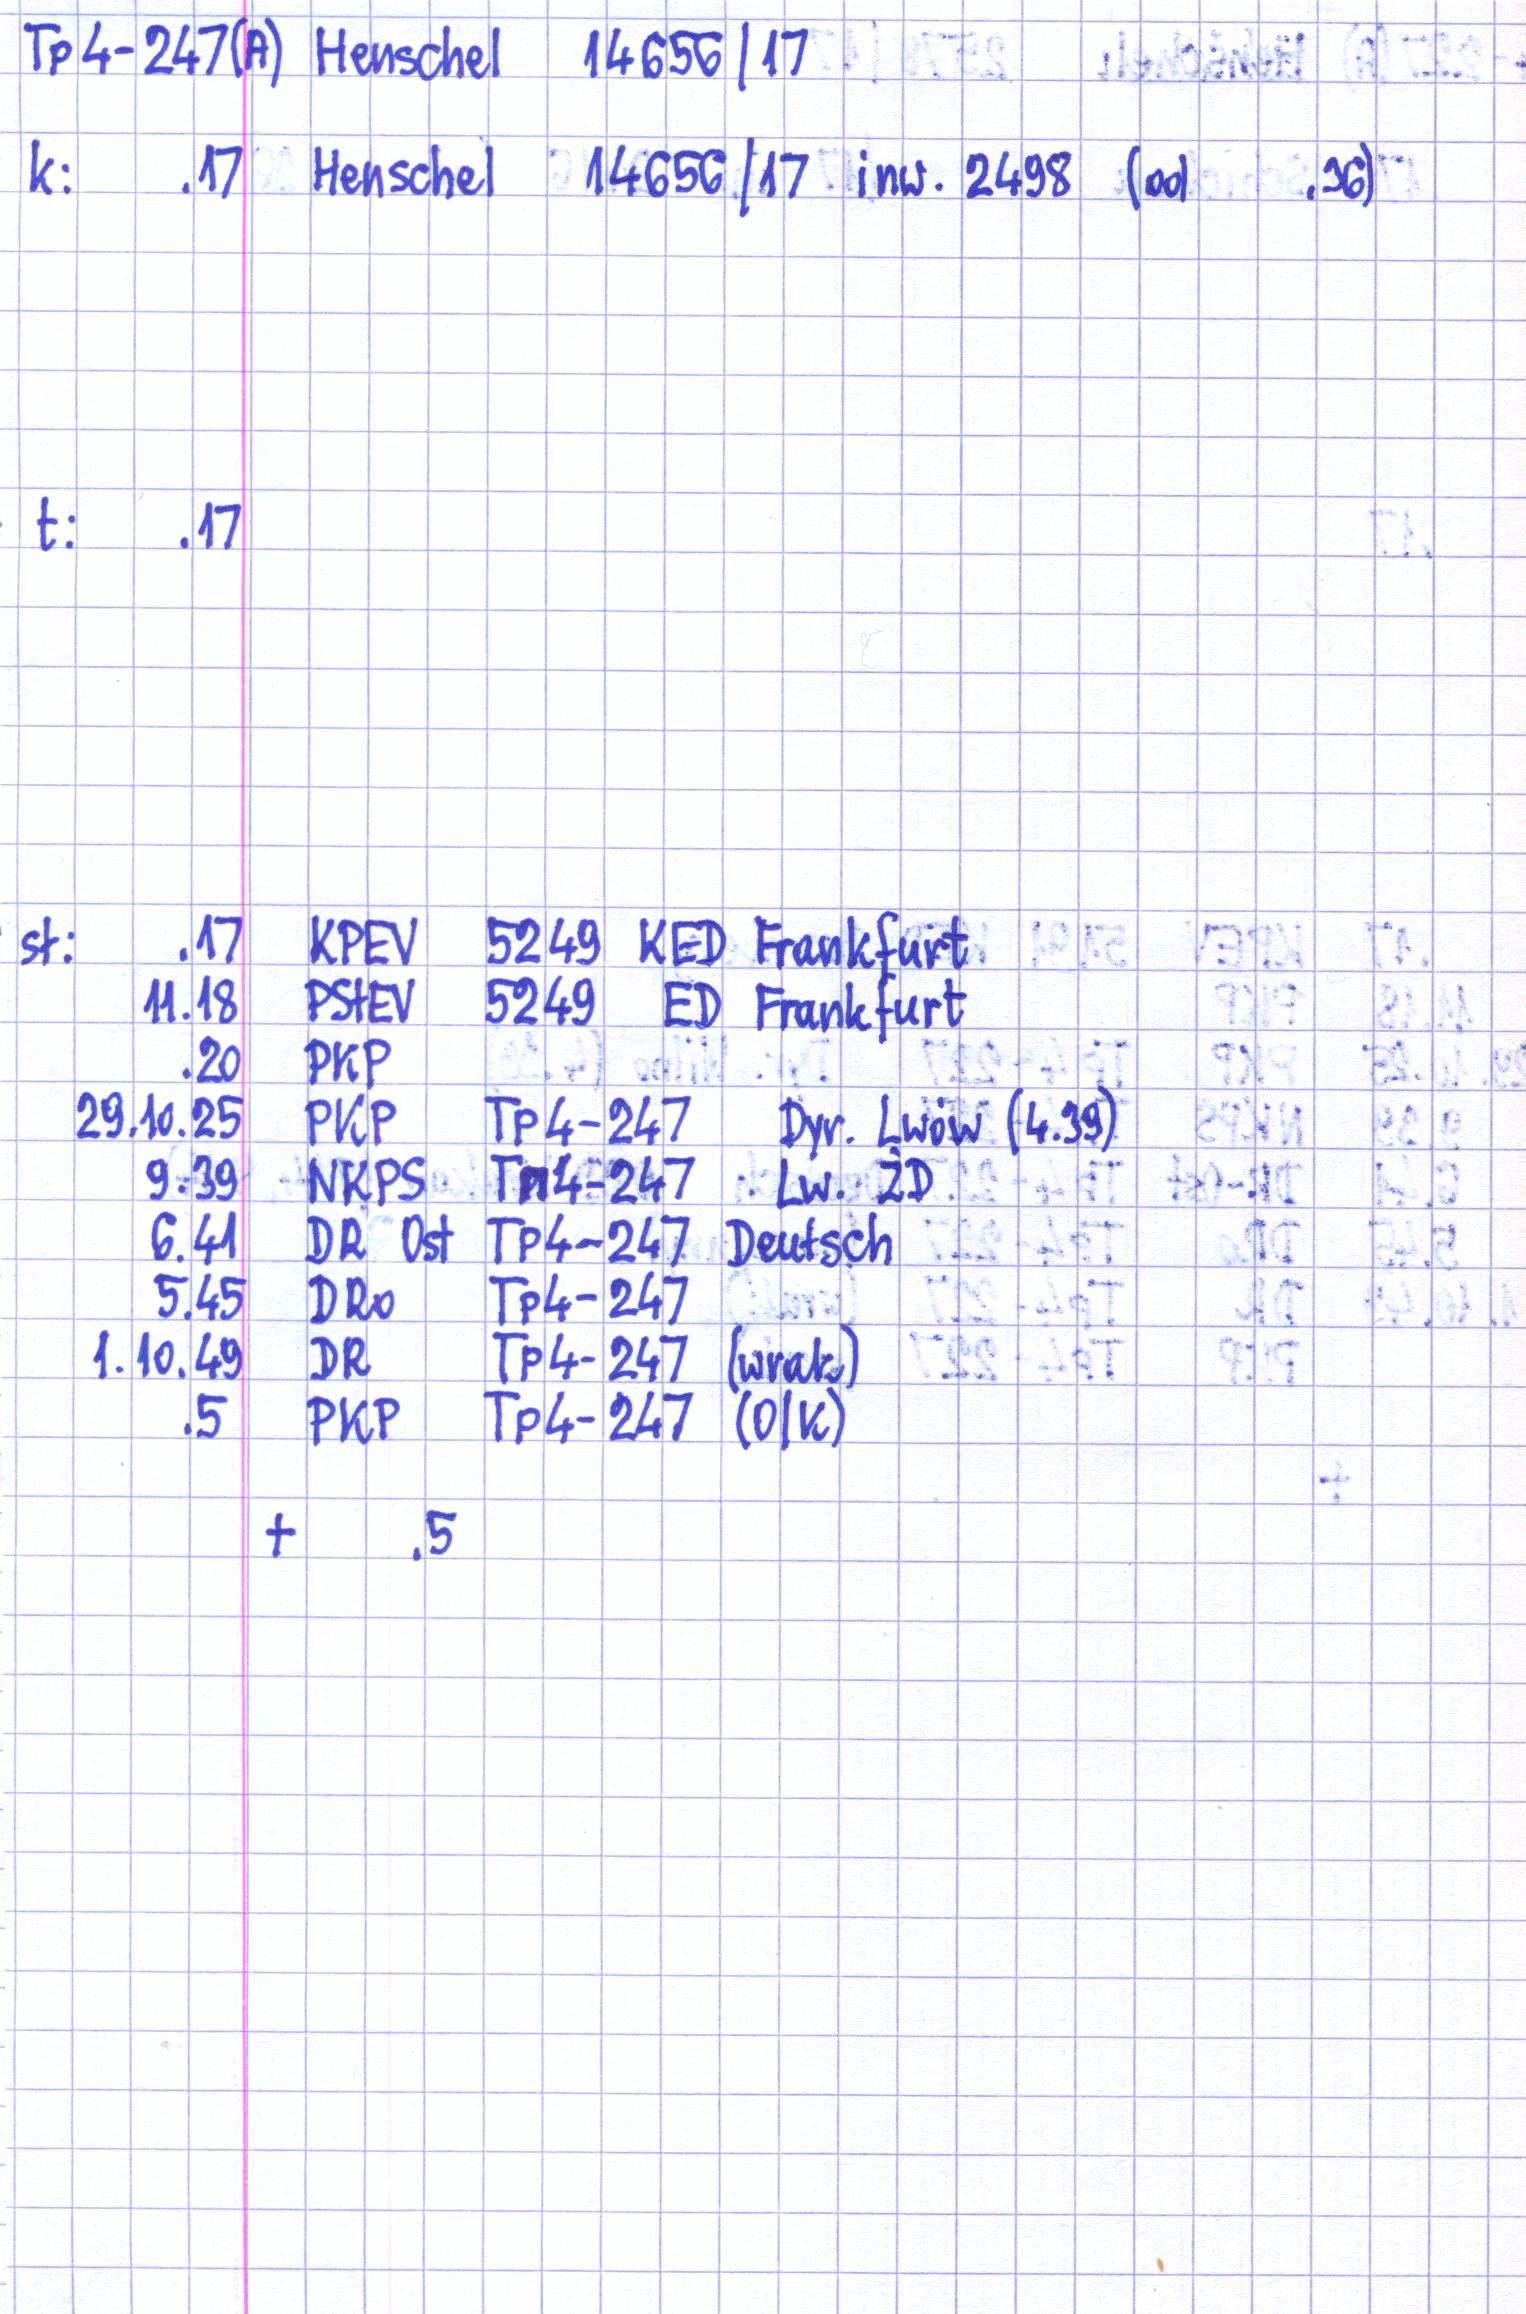 Tp4-247(A) Henschel 14656/17
k: .17 Henschel 14656/17 inw. 2498 (od .36)
t: .17
st: .17 KPEV 5249 KED Frankfurt
11.18 PStEV 5249 ED Frankfurt
.20 PKP
29.10.25 PKP Tp4-247 Dyr. Lwów (4.39)
9.39 NKPS Tп4-247 Lw. ŻD
6.41 DR Ost Tp4-247 Deutsch
5.45 DRo Tp4-247
1.10.49 DR Tp4-247 (wrak)
.5 PKP Tp4-247 (O/K)
+ .5